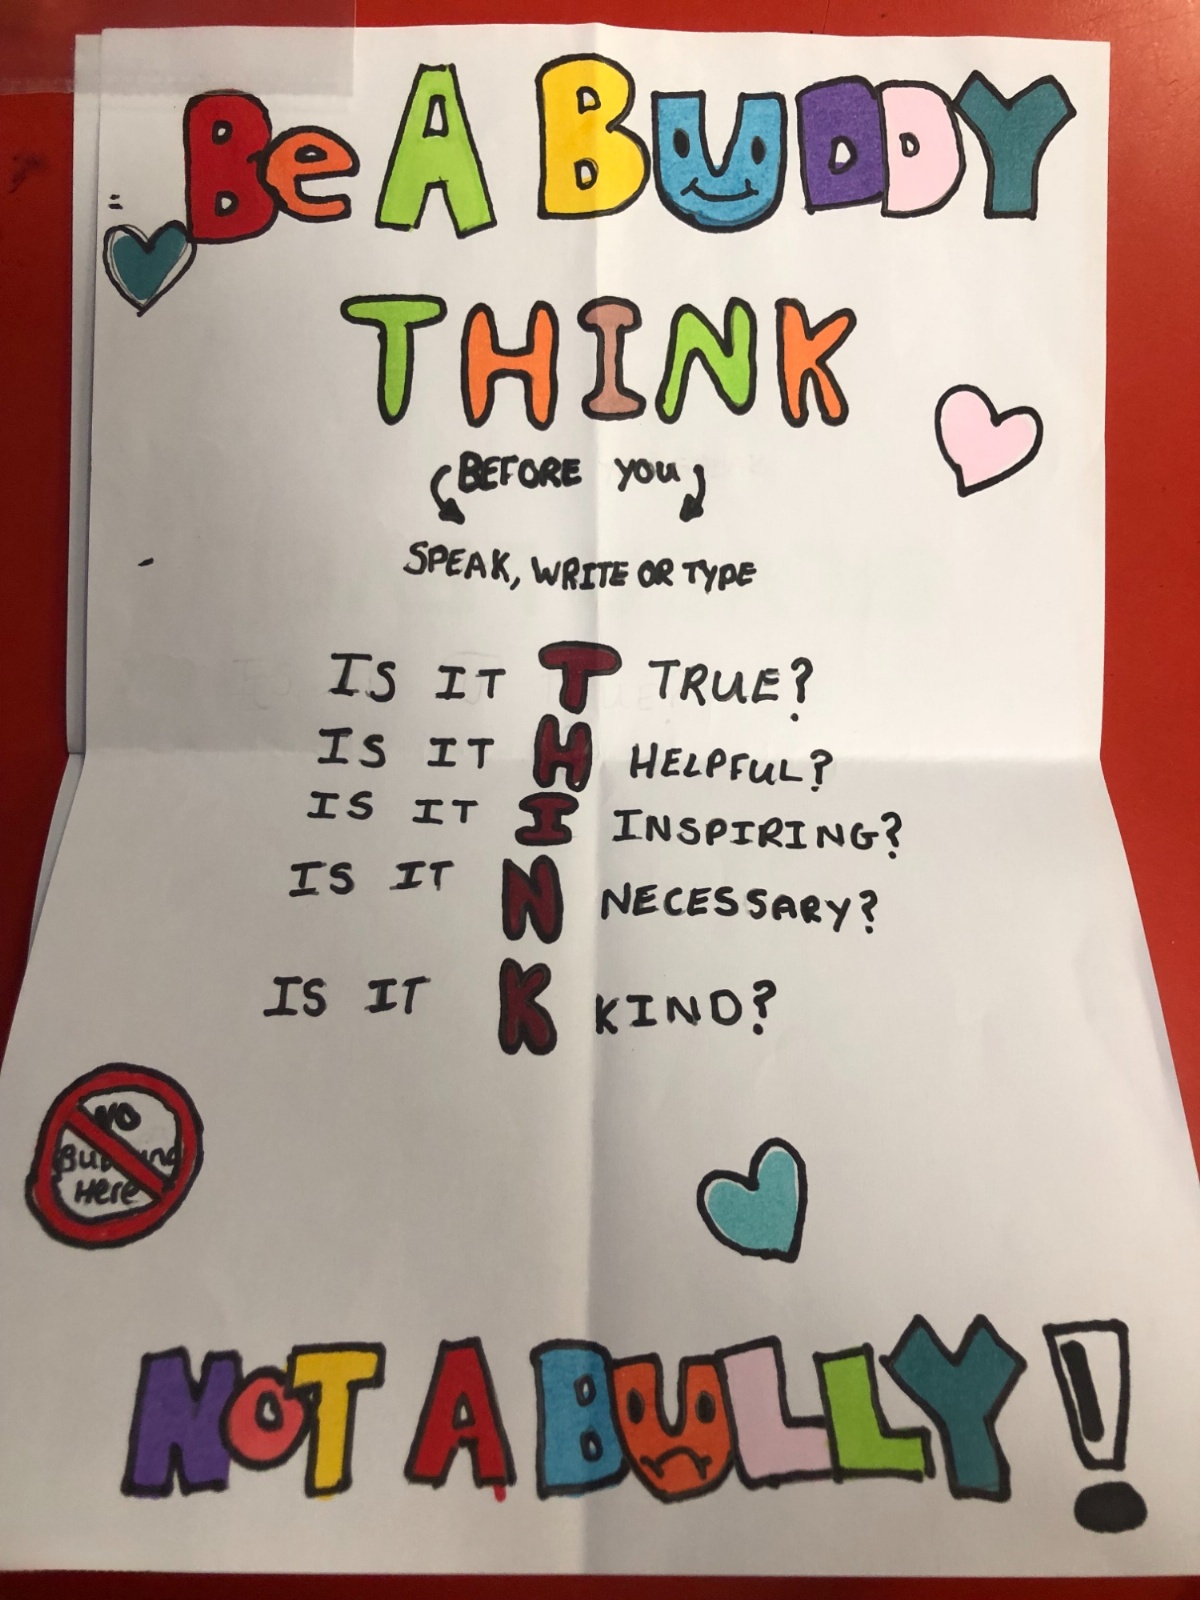 Be A BUDDY
THINK
BEFORE YOU
SPEAK, WRITE OR TYPE
IS IT T TRUE?
IS IT H HELPFUL?
IS IT I INSPIRING?
IS IT N NECESSARY?
IS IT K KIND?
NO
Bullying
Here
NOT A BULLY!